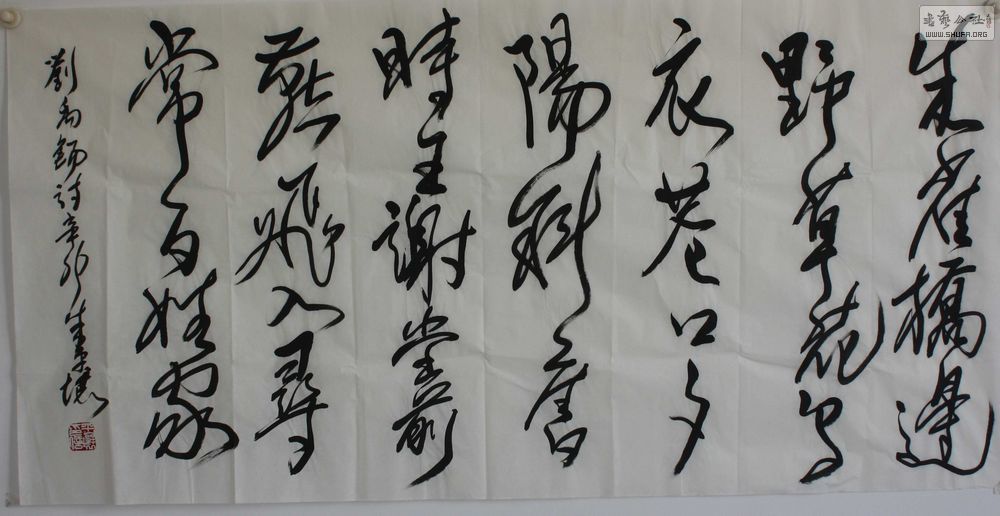 朱雀橋邊
野草花烏
衣巷口夕
陽斜舊
時王謝堂前
燕飛入尋
常百姓家
劉禹錫詩辛卯
書藝公社
WWW.SHUFA.ORG